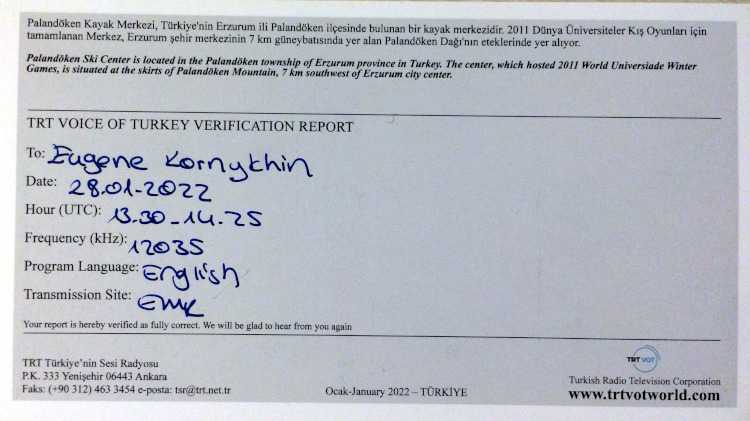 Palandöken Kayak Merkezi, Türkiye'nin Erzurum ili Palandöken ilçesinde bulunan bir kayak merkezidir. 2011 Dünya Üniversiteler Kış Oyunları için
tamamlanan Merkez, Erzurum şehir merkezinin 7 km güneybatısında yer alan Palandöken Dağı'nın eteklerinde yer alıyor.
Palandöken Ski Center is located in the Palandöken township of Erzurum province in Turkey. The center, which hosted 2011 World Universiade Winter
Games, is situated at the skirts of Palandöken Mountain, 7 km southwest of Erzurum city center.
TRT VOICE OF TURKEY VERIFICATION REPORT
To: Eugene Kornykhin
Date: 28.01-2022
Hour (UTC): 13.30-14.25
Frequency (kHz): 12035
Program Language: English
Transmission Site: EMR
Your report is hereby verified as fully correct. We will be glad to hear from you again
TRT Türkiye'nin Sesi Radyosu
P.K. 333 Yenişehir 06443 Ankara
Faks: (+90 312) 463 3454 e-posta: tsr@trt.net.tr
Ocak-January 2022 – TÜRKİYE
TRT VOT
Turkish Radio Television Corporation
www.trtvotworld.com